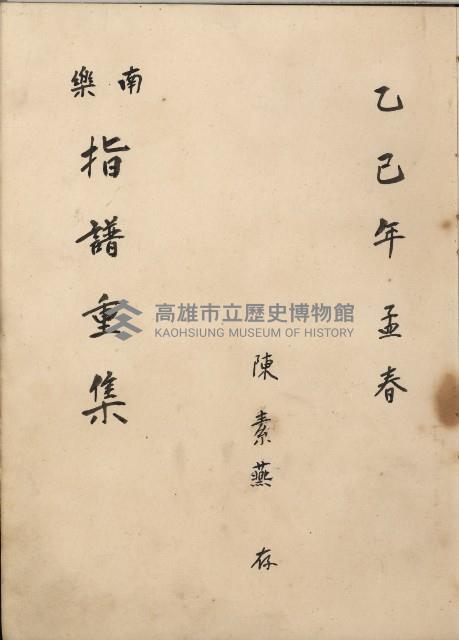 乙巳年孟春
陳素燕 存
南樂
指譜重集
高雄市立歷史博物館
KAOHSIUNG MUSEUM OF HISTORY